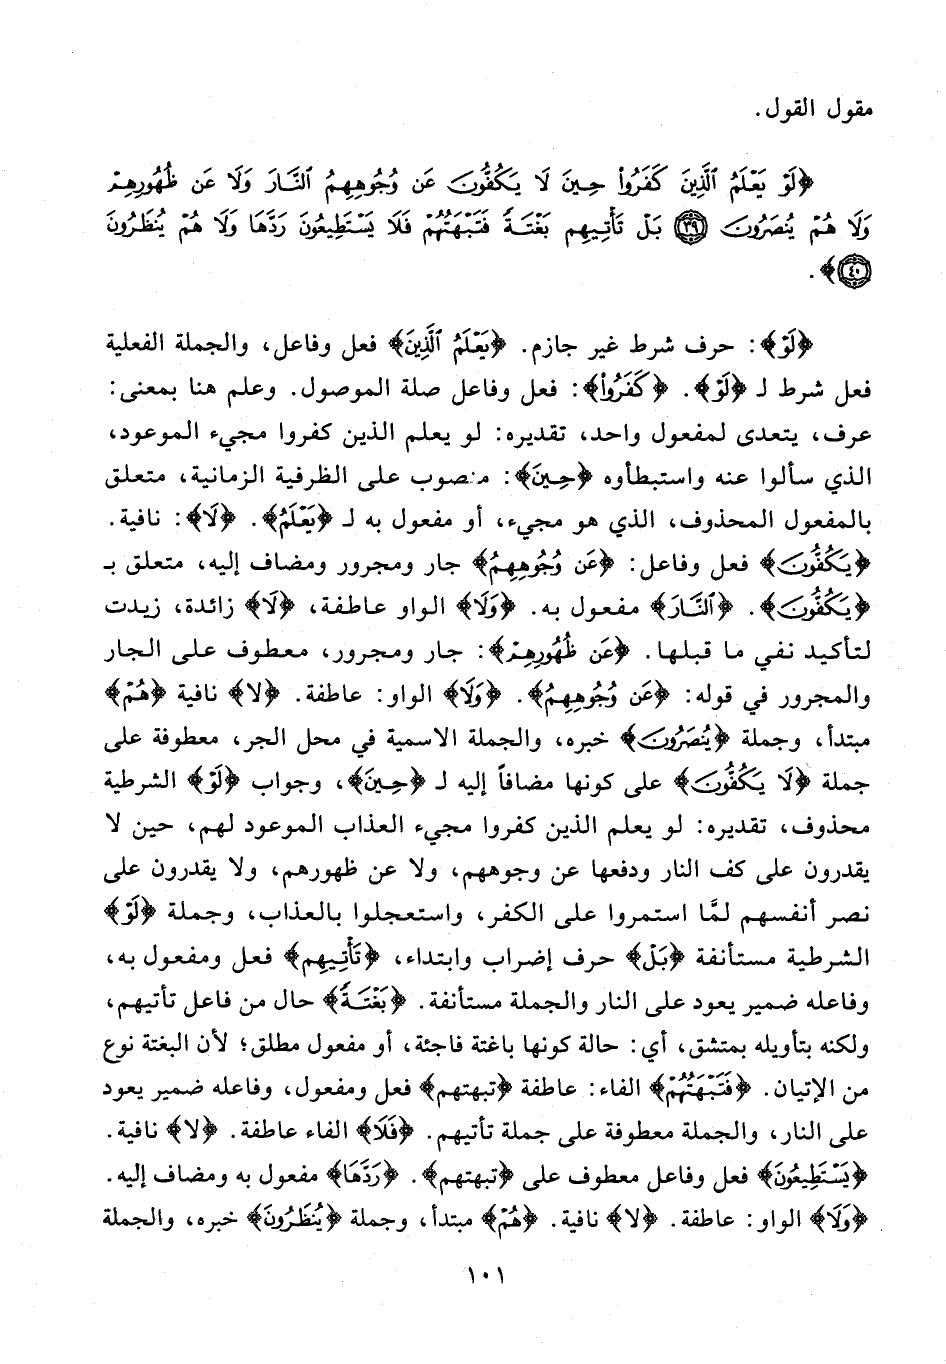 مقول القول.
﴿لَوْ يَعْلَمُ ٱلَّذِينَ كَفَرُوا۟ حِينَ لَا يَكُفُّونَ عَن وُجُوهِهِمُ ٱلنَّارَ وَلَا عَن ظُهُورِهِمْ
وَلَا هُمْ يُنصَرُونَ ٣٩ بَلْ تَأْتِيهِم بَغْتَةً فَتَبْهَتُهُمْ فَلَا يَسْتَطِيعُونَ رَدَّهَا وَلَا هُمْ يُنظَرُونَ
٤٠﴾.
﴿لَوْ﴾: حرف شرط غير جازم. ﴿يَعْلَمُ ٱلَّذِينَ﴾ فعل وفاعل، والجملة الفعلية
فعل شرط لـ ﴿لَوْ﴾. ﴿كَفَرُوا۟﴾: فعل وفاعل صلة الموصول. وعلم هنا بمعنى:
عرف، يتعدى لمفعول واحد، تقديره: لو يعلم الذين كفروا مجيء الموعود،
الذي سألوا عنه واستبطأوه ﴿حِينَ﴾: منصوب على الظرفية الزمانية، متعلق
بالمفعول المحذوف، الذي هو مجيء، أو مفعول به لـ ﴿يَعْلَمُ﴾. ﴿لَا﴾: نافية.
﴿يَكُفُّونَ﴾ فعل وفاعل: ﴿عَن وُجُوهِهِمُ﴾ جار ومجرور ومضاف إليه، متعلق بـ
﴿يَكُفُّونَ﴾. ﴿ٱلنَّارَ﴾ مفعول به. ﴿وَلَا﴾ الواو عاطفة، ﴿لَا﴾ زائدة، زيدت
لتأكيد نفي ما قبلها. ﴿عَن ظُهُورِهِمْ﴾: جار ومجرور، معطوف على الجار
والمجرور في قوله: ﴿عَن وُجُوهِهِمُ﴾. ﴿وَلَا﴾ الواو: عاطفة. ﴿لا﴾ نافية ﴿هُمْ﴾
مبتدأ، وجملة ﴿يُنصَرُونَ﴾ خبره، والجملة الاسمية في محل الجر، معطوفة على
جملة ﴿لَا يَكُفُّونَ﴾ على كونها مضافاً إليه لـ ﴿حِينَ﴾، وجواب ﴿لَوْ﴾ الشرطية
محذوف، تقديره: لو يعلم الذين كفروا مجيء العذاب الموعود لهم، حين لا
يقدرون على كف النار ودفعها عن وجوههم، ولا عن ظهورهم، ولا يقدرون على
نصر أنفسهم لمَّا استمروا على الكفر، واستعجلوا بالعذاب، وجملة ﴿لَوْ﴾
الشرطية مستأنفة ﴿بَلْ﴾ حرف إضراب وابتداء، ﴿تَأْتِيهِم﴾ فعل ومفعول به،
وفاعله ضمير يعود على النار والجملة مستأنفة. ﴿بَغْتَةً﴾ حال من فاعل تأتيهم،
ولكنه بتأويله بمتشق، أي: حالة كونها باغتة فاجئة، أو مفعول مطلق؛ لأن البغتة نوع
من الإتيان. ﴿فَتَبْهَتُهُمْ﴾ الفاء: عاطفة ﴿تبهتهم﴾ فعل ومفعول، وفاعله ضمير يعود
على النار، والجملة معطوفة على جملة تأتيهم. ﴿فَلَا﴾ الفاء عاطفة. ﴿لا﴾ نافية.
﴿يَسْتَطِيعُونَ﴾ فعل وفاعل معطوف على ﴿تبهتهم﴾. ﴿رَدَّهَا﴾ مفعول به ومضاف إليه.
﴿وَلَا﴾ الواو: عاطفة. ﴿لا﴾ نافية. ﴿هُمْ﴾ مبتدأ، وجملة ﴿يُنظَرُونَ﴾ خبره، والجملة
١٠١